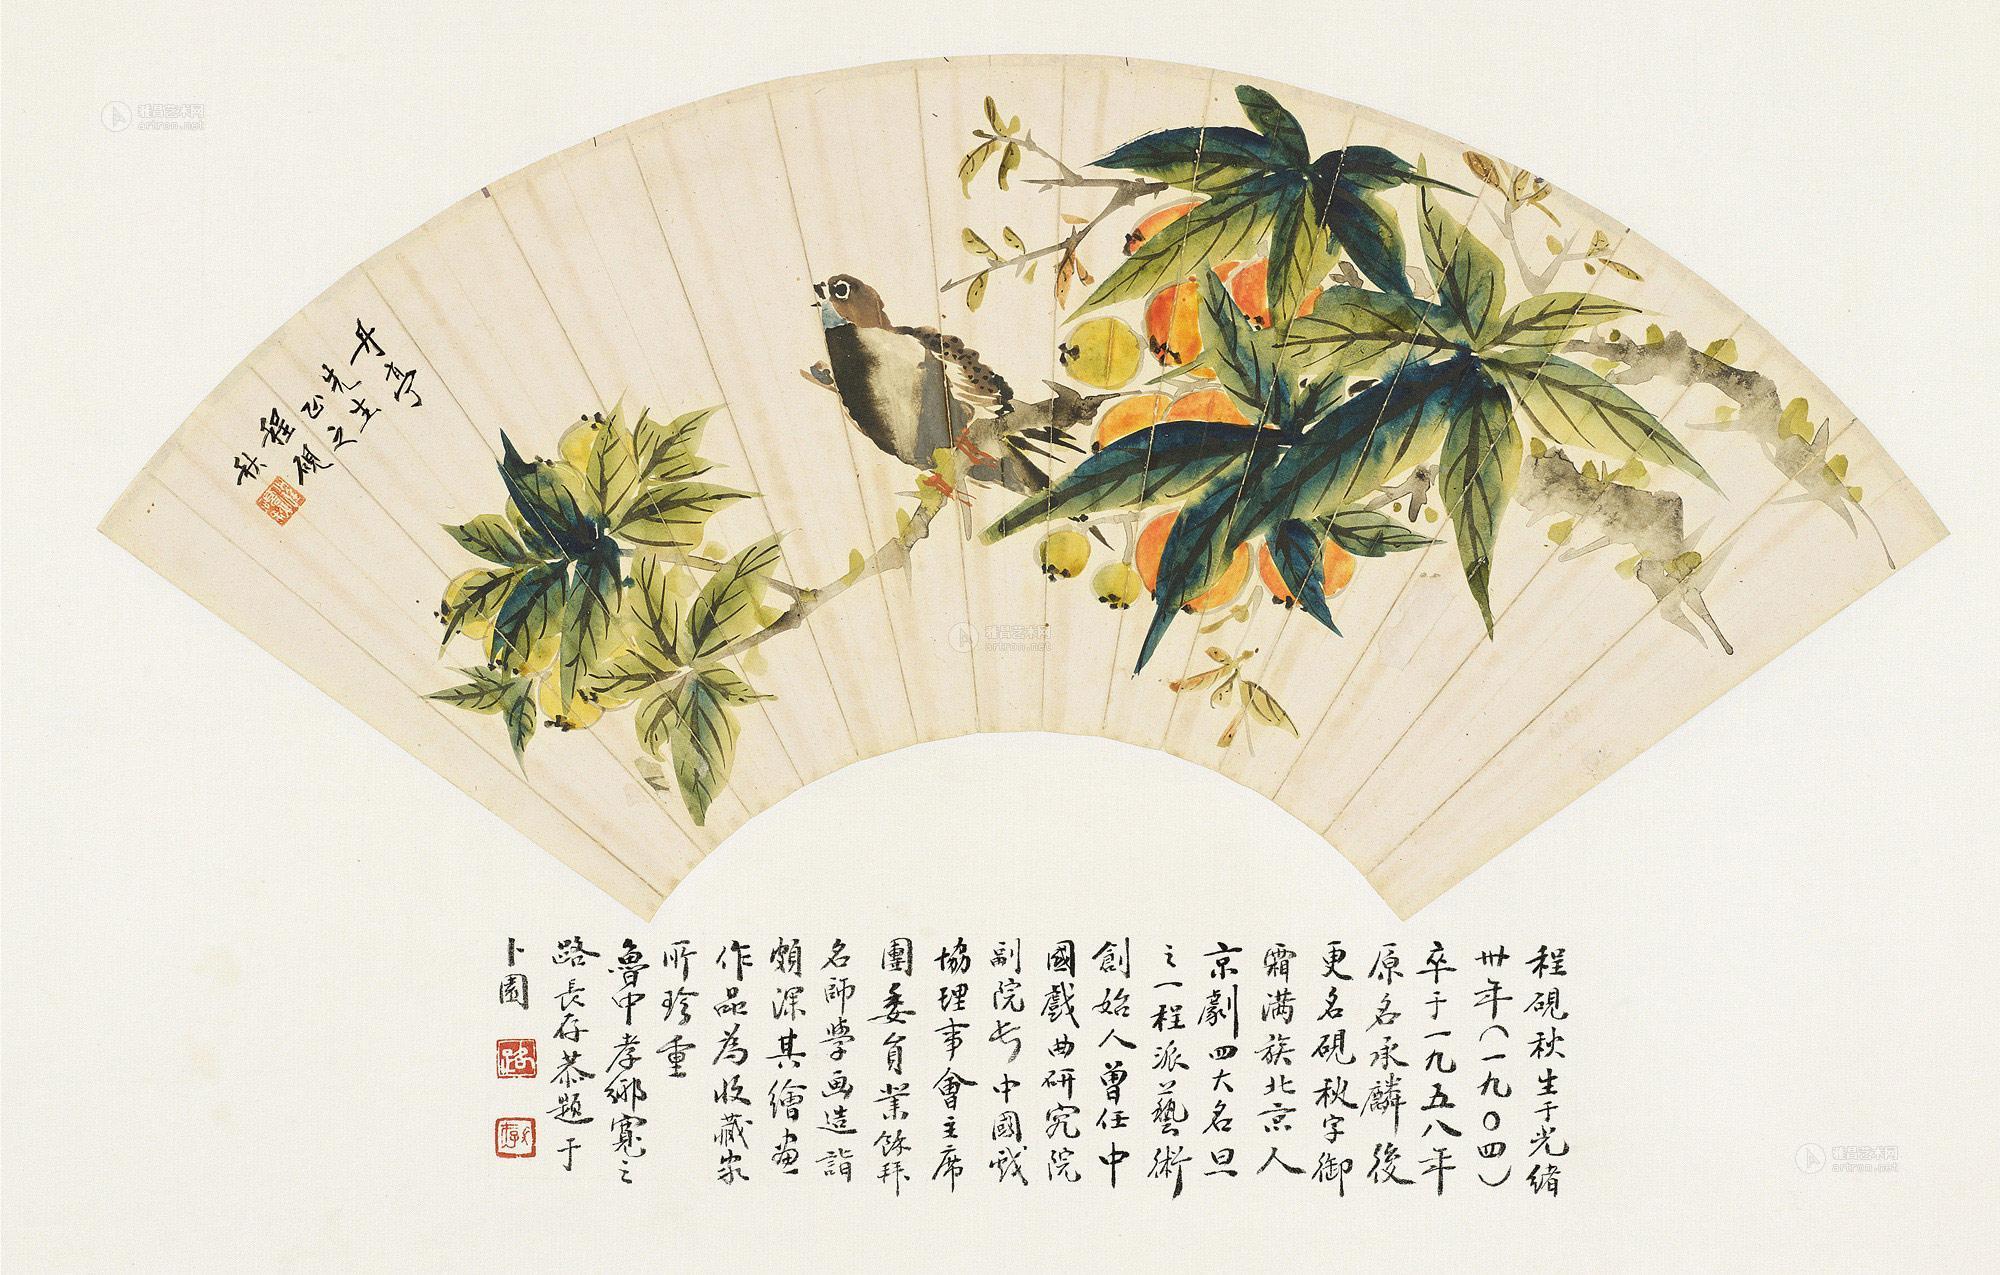 丹亭
先生
正之
程硯
秋
程硯秋生于光緒
卅年(一九〇四)
卒于一九五八年
原名承麟後
更名硯秋字御
霜满族北京人
京劇四大名旦
之一程派藝術
創始人曾任中
國戲曲研究院
副院长中國戏
協理事會主席
團委員業餘拜
名師學画造詣
頗深其繪畫
作品為收藏家
所珍重
魯中孝鄉寬之
路長存恭題于
卜園
雅昌艺术网
artron.net
雅昌艺术网
artron.net
雅昌艺术网
artron.net